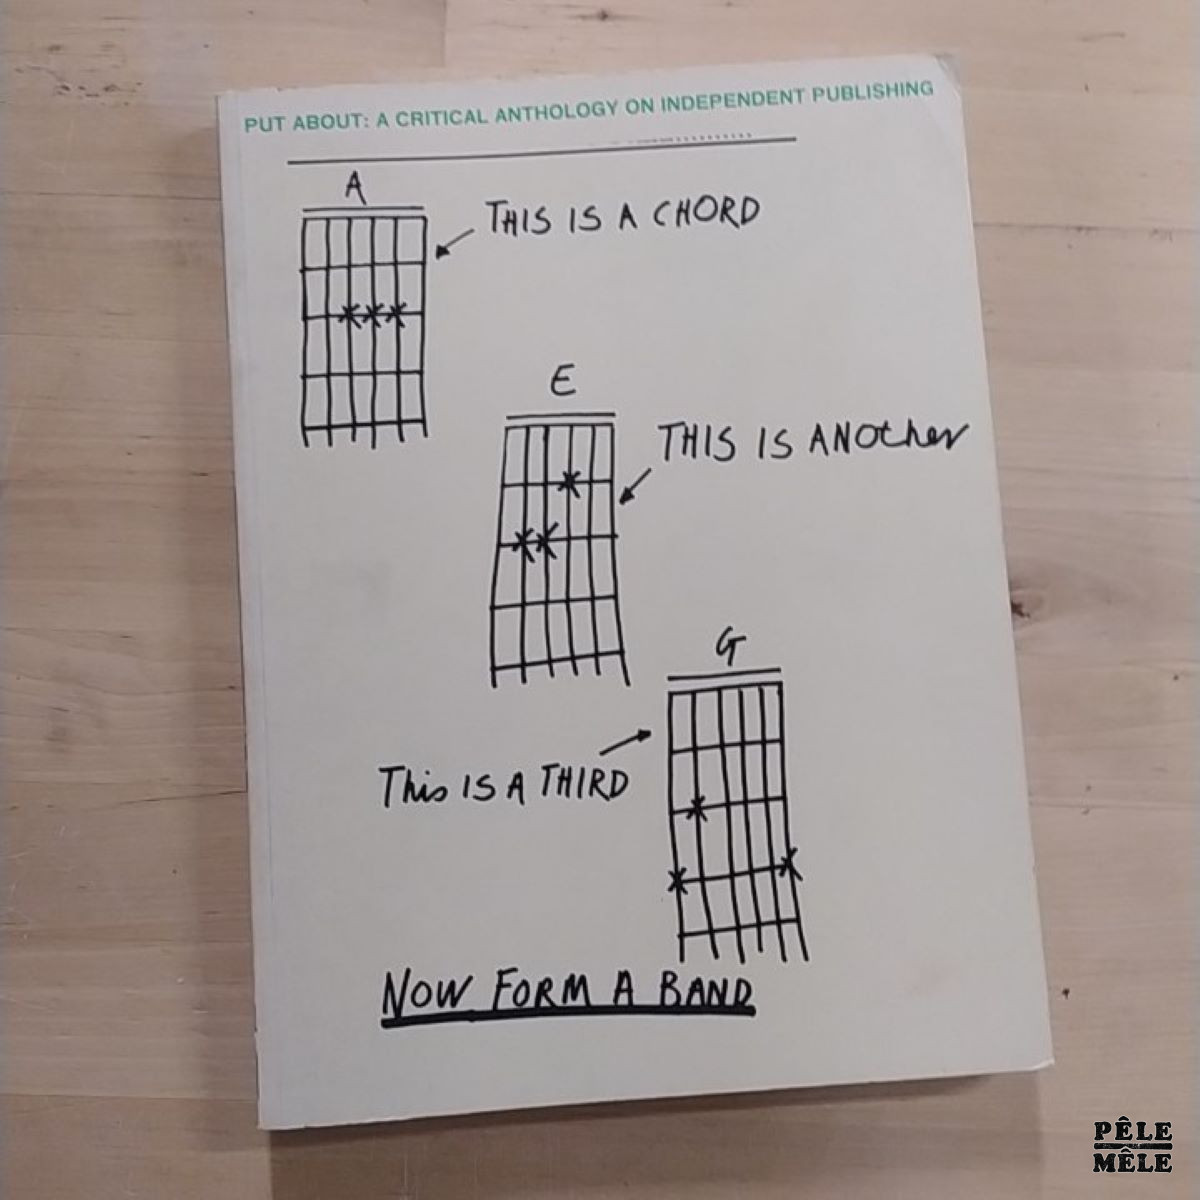 PUT ABOUT: A CRITICAL ANTHOLOGY ON INDEPENDENT PUBLISHING
A
THIS IS A CHORD
E
THIS IS ANOther
G
This IS A THIRD
NOW FORM A BAND
PÊLE
MÊLE